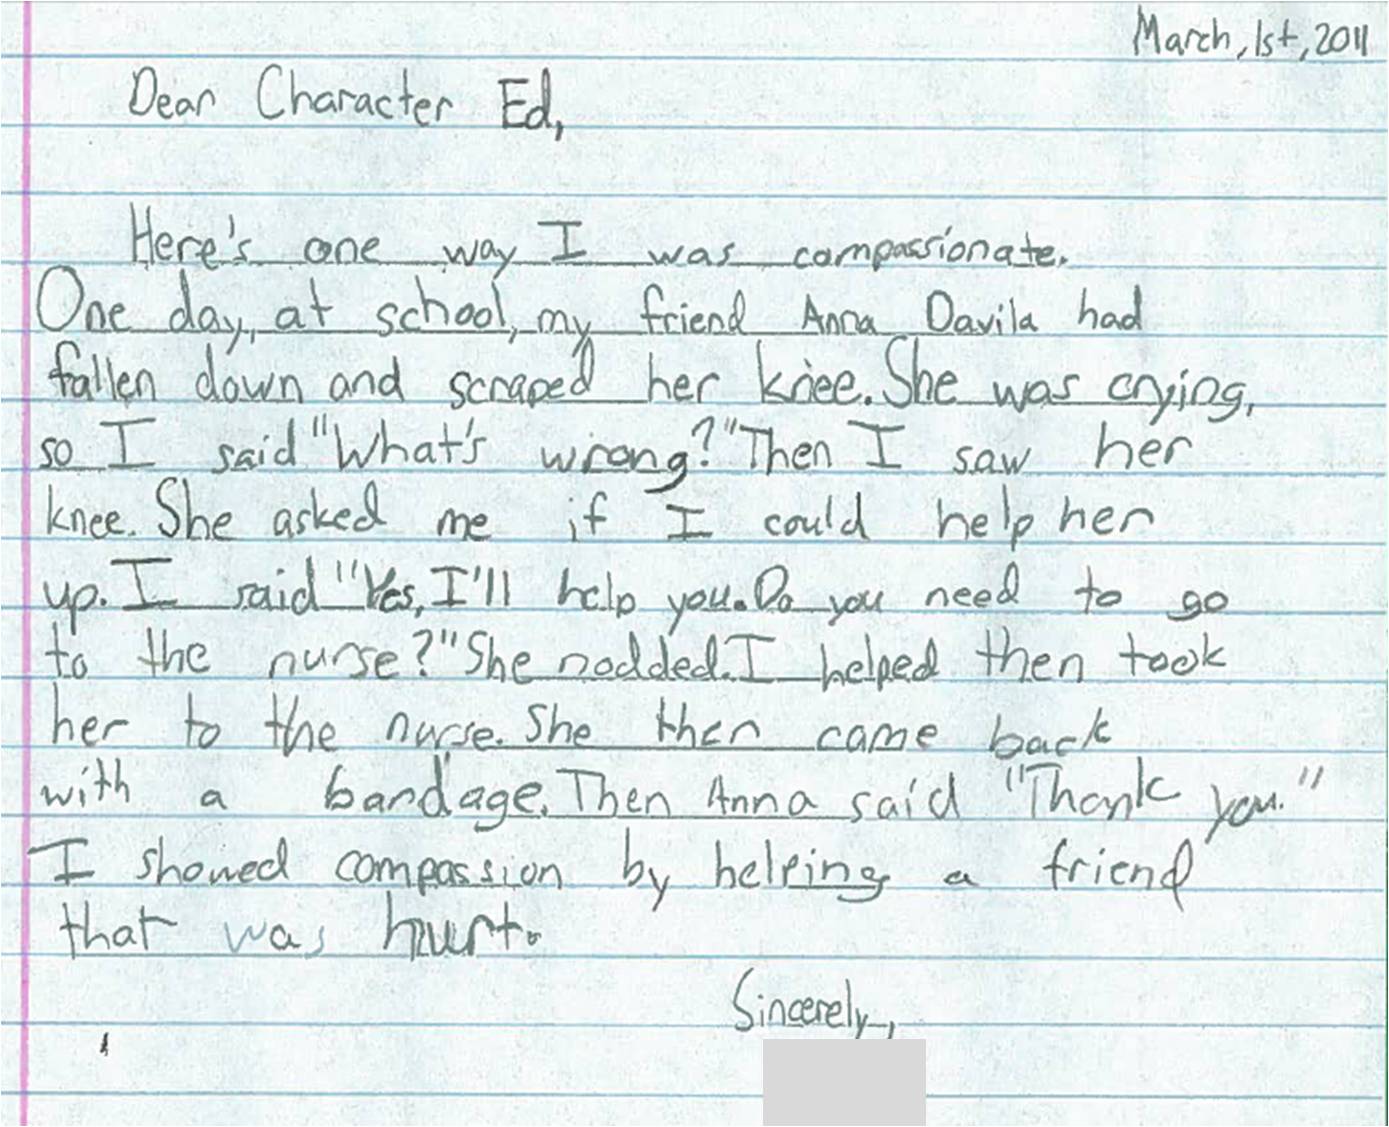 March, 1st, 2011
Dear Character Ed,
Here's one way I was compassionate.
One day, at school, my friend Anna Davila had
fallen down and scraped her knee. She was crying,
so I said "What's wrong?" Then I saw her
knee. She asked me if I could help her
up. I said "Yes, I'll help you. Do you need to go
to the nurse?" She nodded. I helped then took
her to the nurse. She then came back
with a bandage. Then Anna said "Thank you."
I showed compassion by helping a friend
that was hurt.
Sincerely,